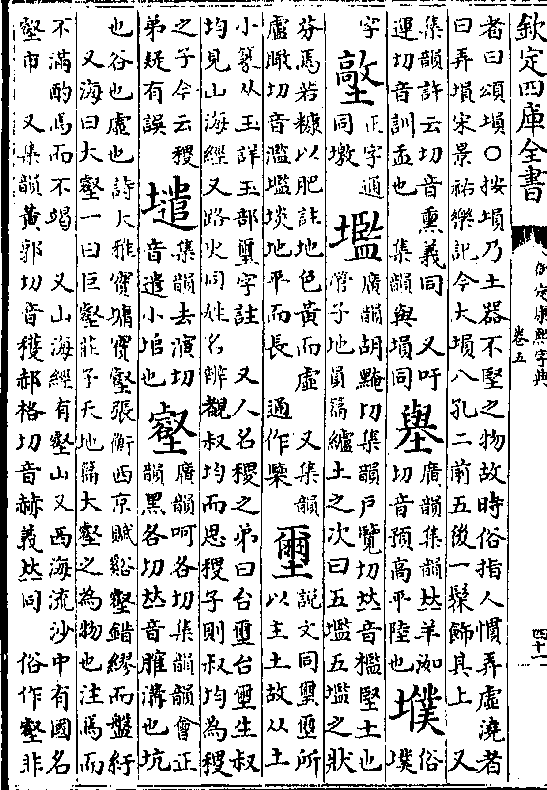 欽定四庫全書
御定康熙字典
卷五
四十一
者曰頌塤○按塤乃土器不堅之物故時俗指人慣弄虛澆者
曰弄塤宋景祐樂記今大塤八孔二前五後一髹飾其上 又
集韻許云切音熏義同 又吁
運切音訓盂也 集韻與塤同
壆
廣韻集韻𠀤羊洳
切音預高平陸也
墣
俗
墣
字
𡐊
正字通
同墩
壏
廣韻胡黤切集韻戸覽切𠀤音檻堅土也
管子地員篇纑土之次曰五壏五壏之狀
芬焉若糠以肥註地色黃而虛 又集韻
盧瞰切音濫壏埮地平而長 通作檃
壐
說文同璽壐所
以主土故从土
小篆从玉詳玉部璽字註 又人名稷之弟曰台壐台壐生叔
均見山海經又路史同姓名辨觀叔均而思稷子則叔均為稷
之子今云稷
弟疑有誤
壝
集韻去演切
音遣小堷也
壑
廣韻呵各切集韻韻會正
韻黑各切𠀤音臛溝也坑
也谷也虛也詩大雅實墉實壑張衡西京賦谿壑錯繆而盤紆
又海曰大壑一曰巨壑莊子天地篇大壑之為物也注焉而
不滿酌焉而不竭 又山海經有壑山又西海流沙中有國名
壑市 又集韻黃郭切音穫郝格切音赫義𠀤同 俗作壑非